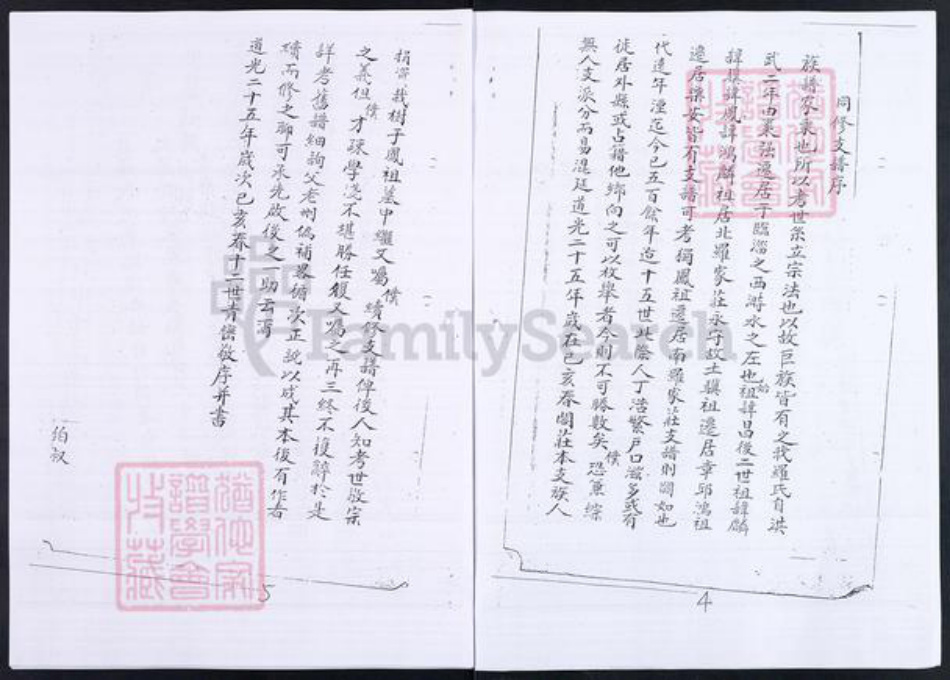 同修支譜序
族譜家乘也所以考世系立宗法也以故巨族皆有之我羅氏自洪
武二年由棗強遷居于臨淄之西游水之左也始祖諱昌後二世祖諱麟
諱騏諱鳳諱鴻麟祖居北羅家莊永守故土騏祖遷居章邱鴻祖
遷居樂安皆有支譜可考獨鳳祖遷居南羅家莊支譜則闕如也
代遠年湮迄今已五百餘年迨十五世此際人丁浩繁戶口滋多或有
徙居外縣或占籍他鄉向之可以枚舉者今則不可勝數矣恐無綜
無人支派分而易混延道光二十五年歲在己亥春闔莊本支族人
捐資栽樹子鳳祖墓中繼又囑僕續修支譜俾後人知考世敬宗
之義但僕才疎學淺不堪勝任復又囑之再三終不獲辭於是
詳考舊譜細詢父老刪偽補畧循次正訛以成其本後有作者
續而修之聊可承先啟後之一助云爾
道光二十五年歲次己亥春十二世肯密敬序并書
伯叔
4
5
FamilySearch